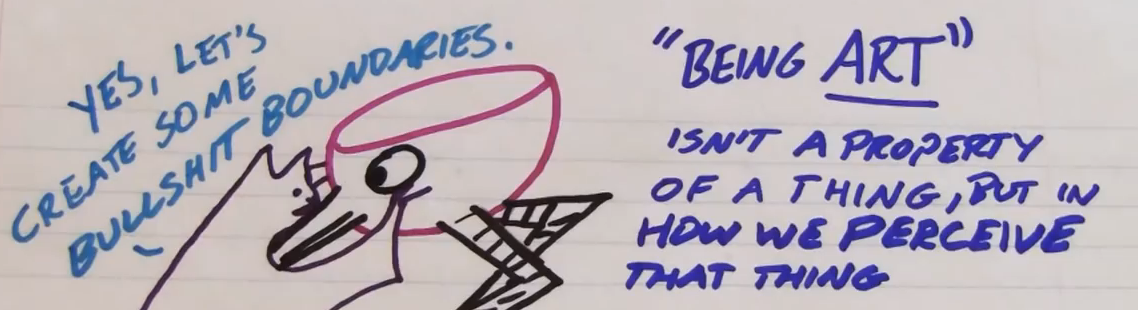 YES, LET'S
CREATE SOME
BULLSHIT BOUNDARIES.
"BEING ART"
ISN'T A PROPERTY
OF A THING, BUT IN
HOW WE PERCEIVE
THAT THING